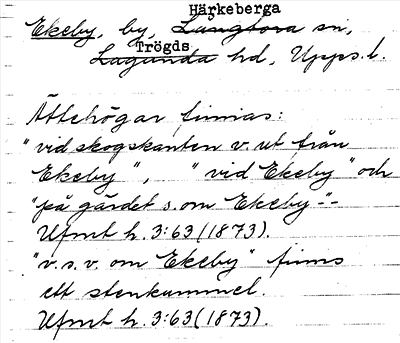 Härkeberga
Ekeby, by, Långtora sn,
Trögds
Lagunda hd, Upps. l.
Ättehögar finnas:
"vid skogskanten v. ut från
Ekeby", "vid Ekeby" och
"på gärdet s. om Ekeby"--
Ufmt h. 3:63 (1873).
"v.s.v. om Ekeby" finns
ett stenkummel.
Ufmt h. 3:63 (1873).